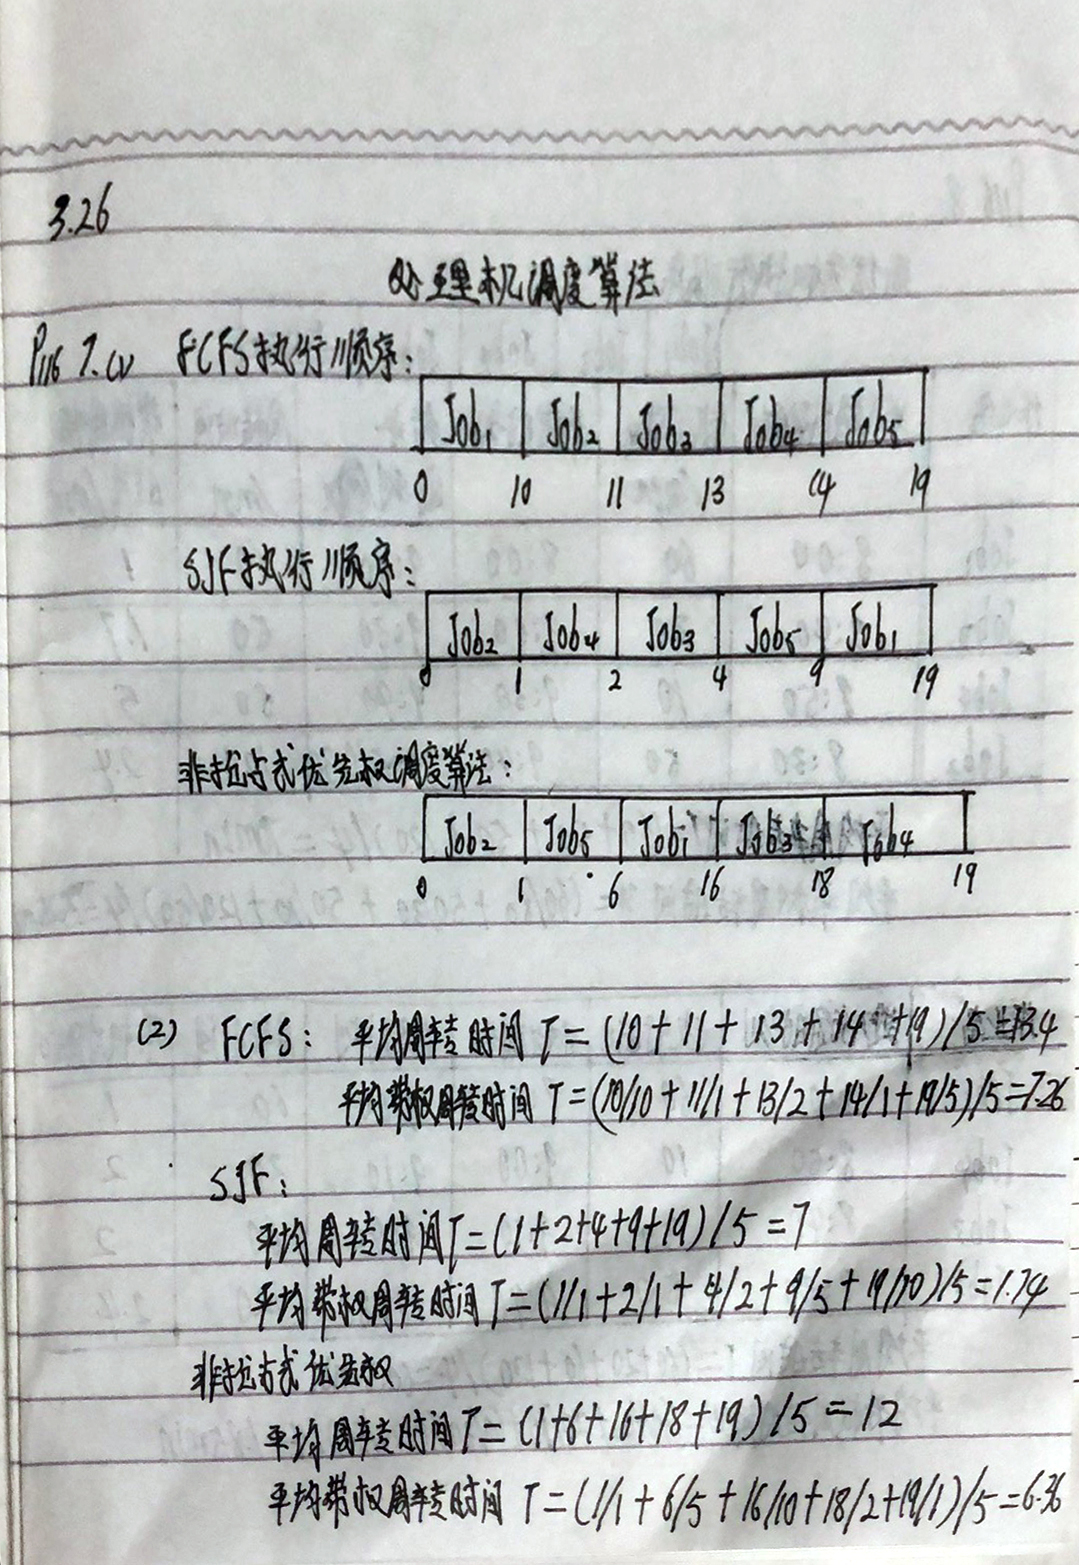 3.26
处理机调度算法
P116 7.(1) FCFS执行顺序:
Job1 Job2 Job3 Job4 Job5
0 10 11 13 14 19
SJF执行顺序:
Job2 Job4 Job3 Job5 Job1
0 1 2 4 9 19
非抢占式优先权调度算法:
Job2 Job5 Job1 Job3 Job4
0 1 6 16 18 19
(2) FCFS: 平均周转时间 T=(10+11+13+14+19)/5=13.4
平均带权周转时间 T=(10/10+11/1+13/2+14/1+19/5)/5=7.26
SJF:
平均周转时间T=(1+2+4+9+19)/5=7
平均带权周转时间T=(1/1+2/1+4/2+9/5+19/10)/5=1.74
非抢占式优先权
平均周转时间T=(1+6+16+18+19)/5=12
平均带权周转时间 T=(1/1+6/5+16/10+18/2+19/1)/5=6.36